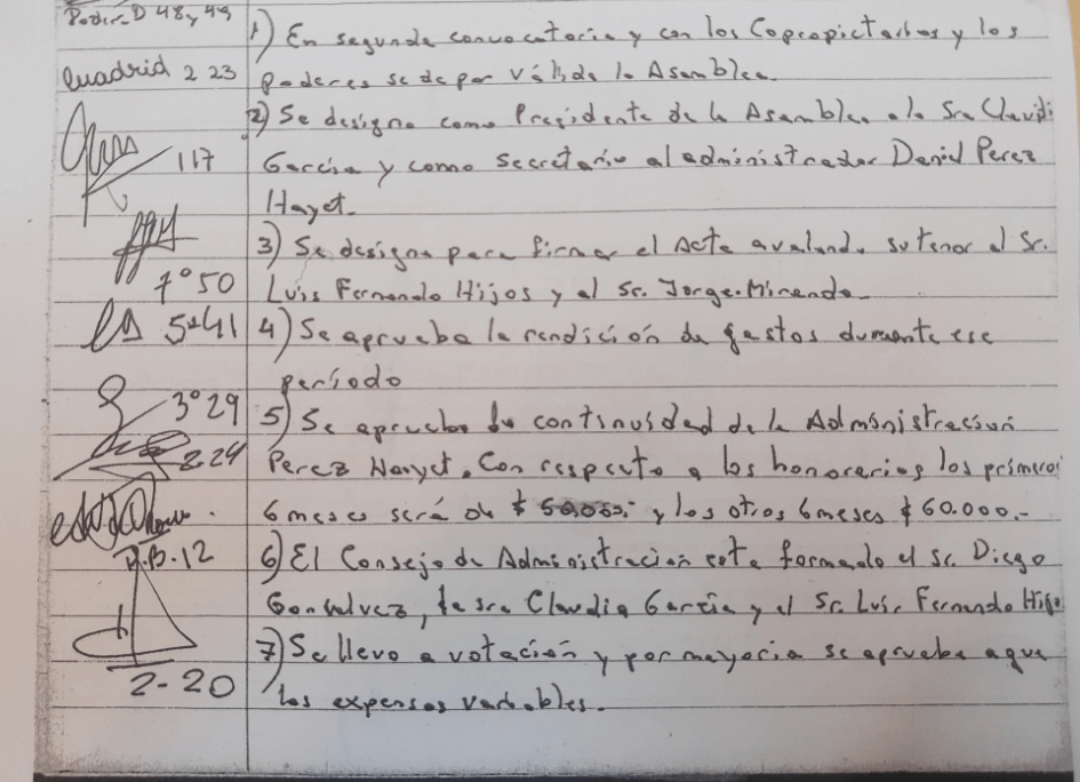 Poder. D 48 y 49
1) En segunda convocatoria y con los Copropietarios y los
2 23
poderes se da por válida la Asamblea.
2) Se designa como Presidente de la Asamblea a la Sra Claudi
117
García y como Secretario al administrador Daniel Perez
Hayet.
3) Se designa para firmar el Acta avalando su tenor al Sr.
7° 50
Luis Fernando Hijos y al Sr. Jorge Miranda.
5° 41
4) Se aprueba la rendición de gastos durante ese
período
3° 29
5) Se aprueba la continuidad de la Administración
2 24
Perez Hayet. Con respecto a los honorarios los primeros
6 meses será de $ 50.000.- y los otros 6 meses $ 60.000.-
P.B. 12
6) El Consejo de Administración esta formado el Sr. Diego
Gonsalvez, la sra Claudia García y el Sr. Luis Fernando Hijo
7) Se llevo a votación y por mayoria se aprueba a que
2 - 20
las expensas variables.